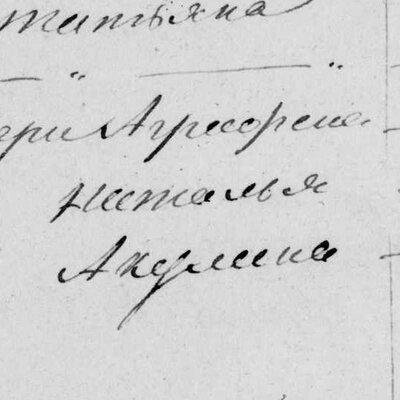 Татьяна
— " — "
ери Агрофена
Наталья
Акулина